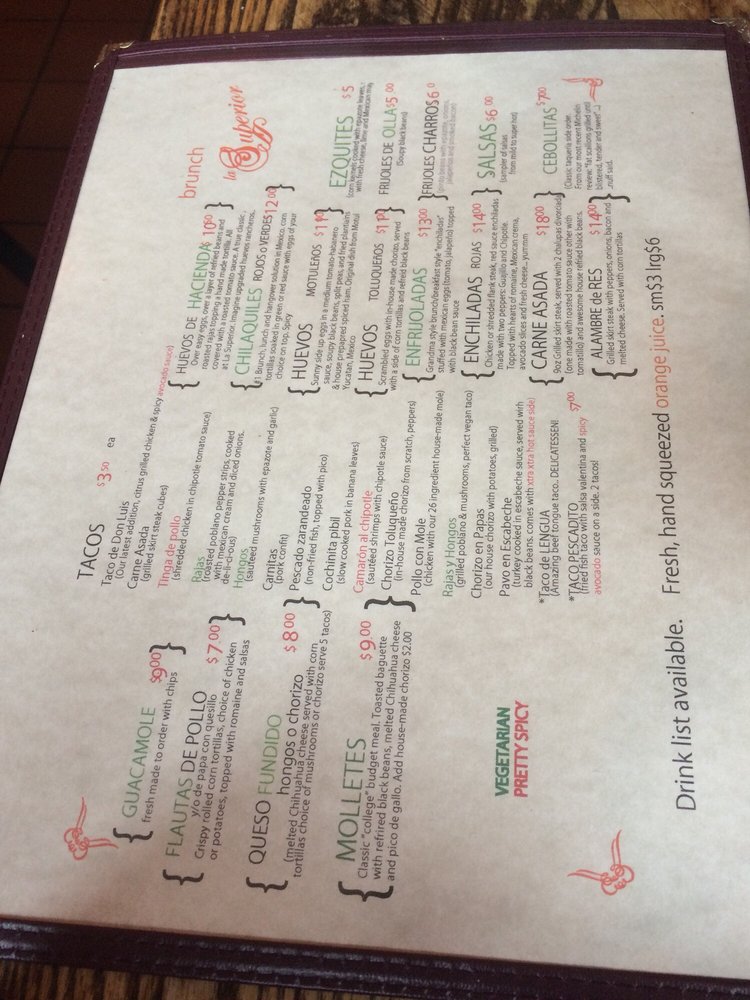 brunch
la Superior
GUACAMOLE $9.00
fresh made to order with chips
FLAUTAS DE POLLO $7.00
y/o de papa con quesillo
Crispy rolled corn tortillas, choice of chicken
or potatoes, topped with romaine and salsas
QUESO FUNDIDO
hongos o chorizo $8.00
(melted Chihuahua cheese served with corn
tortillas choice of mushrooms or chorizo serve 5 tacos)
MOLLETES $9.00
Classic "college" budget meal. Toasted baguette
with refrired black beans, melted Chihuahua cheese
and pico de gallo. Add house-made chorizo $2.00
VEGETARIAN
PRETTY SPICY
TACOS $3.50 ea
Taco de Don Luis
(Our latest addition, citrus grilled chicken & spicy avocado sauce)
Carne Asada
(grilled skirt steak cubes)
Tinga de pollo
(shredded chicken in chipotle tomato sauce)
Rajas
(roasted poblano pepper strips, cooked
with mexican cream and diced onions.
de-li-ci-ous)
Hongos
(sauteed mushrooms with epazote and garlic)
Carnitas
(pork confit)
Pescado zarandeado
(non-fried fish, topped with pico)
Cochinita pibil
(slow cooked pork in banana leaves)
Camaron al chipotle
(sautéed shrimps with chipotle sauce)
Chorizo Toluqueño
(in-house made chorizo from scratch, peppers)
Pollo con Mole
(chicken with our 26 ingredient house-made mole)
Rajas y Hongos
(grilled poblano & mushrooms, perfect vegan taco)
Chorizo en Papas
(our house chorizo with potatoes, grilled)
Pavo en Escabeche
(turkey cooked in escabeche sauce, served with
black beans. comes with xtra xtra hot sauce side)
*Taco de LENGUA
(Amazing beef tongue taco.. DELICATESSEN!
*TACO PESCADITO $7.00
(fried fish taco with salsa valentina and spicy
avocado sauce on a side. 2 tacos!
HUEVOS DE HACIENDA $10.50
Over easy eggs, over a layer of refried beans and
roasted rajas topping a hand made tortilla. All
covered with a roasted tomato sauce. A true classic,
at La Superior. Imagine upgraded huevos rancheros.
CHILAQUILES ROJOS o VERDES 12.00
#1 Brunch, lunch and hangover solution in Mexico. corn
tortillas soaked in green or red sauce with eggs of your
choice on top. Spicy
HUEVOS MOTULEÑOS
Sunny side up eggs in a medium tomato-habanero
sauce, soupy black beans, split peas, and fried plantains
& house prepapred spiced ham. Original dish from Motul
Yucatan, Mexico
HUEVOS TOLUQUEÑOS
Scrambled eggs with in-house made chorizo, served
with a side of corn tortillas and refried black beans
ENFRIJOLADAS $13.00
Grandma style brunch/breakfast style "enchiladas"
stuffed with mexican eggs (tomato, jalapeño) topped
with black bean sauce
ENCHILADAS ROJAS $14.00
Chicken or shredded flank steak, red sauce enchiladas
made with two peppers: Guajillo and Chipotle.
Topped with hearts of romaine, Mexican crema,
avocado slices and fresh cheese... yummm
CARNE ASADA $18.00
9oz Grilled skirt steak, served with 2 chalupas divorciadas
(one made with roasted tomato sauce other with
tomatillo) and awesome house refried black beans.
ALAMBRE de RES $14.00
Grilled skirt steak with peppers, onions, bacon and
melted cheese. Served with corn tortillas
EZQUITES $5
(corn kernels cooked with epazote leaves,
with fresh cheese, lime and Mexican may
FRIJOLES DE OLLA $5.00
(Soupy black beans)
FRIJOLES CHARROS 6.0
(pinto beans with epazote, onions,
jalapenos and smoked bacon)
SALSAS $6.00
(sampler of salsas
from mild to super hot)
CEBOLLITAS $7.00
(Classic taqueria side order.
From our most recent Michelin
review: "fat scallions grilled until
blistered, tender and sweet"...)
..nuff said.
Drink list available. Fresh, hand squeezed orange juice. sm$3 lrg$6